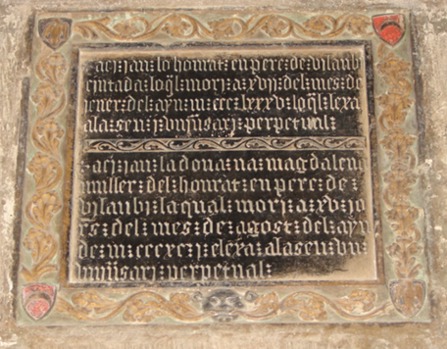 : aci : iau : lo honrat : en pere : de : vilaubi
cintada : loql : mori : a : xvii : del : mes : de
iener : del : ayn : m : ccc : lxxxv : loql : lexa
ala : seu : j : vnjuersarj : perpetual :
: aci : iau : la dona : na magdalena
muller : del : honrat : en pere : de :
vilaubi : la qual : mori : a : xv : jo
rs : del : mes : de : agost : del : ayn
de : m : ccccxcj : elexa : alaseu : vn
vnjuersarj : perpetual :